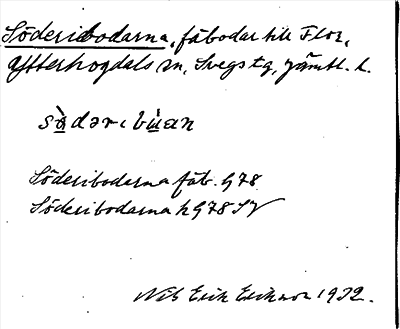 Söderibodarna, fäbodar till Flor,
Ytterhogdals sn, Svegs tg, Jämtl. l.
sə̀dərıbùan
Söderibodarna fäb. G78
Söderibodarna h G78 SV
Nils Erik Erikson 1932.